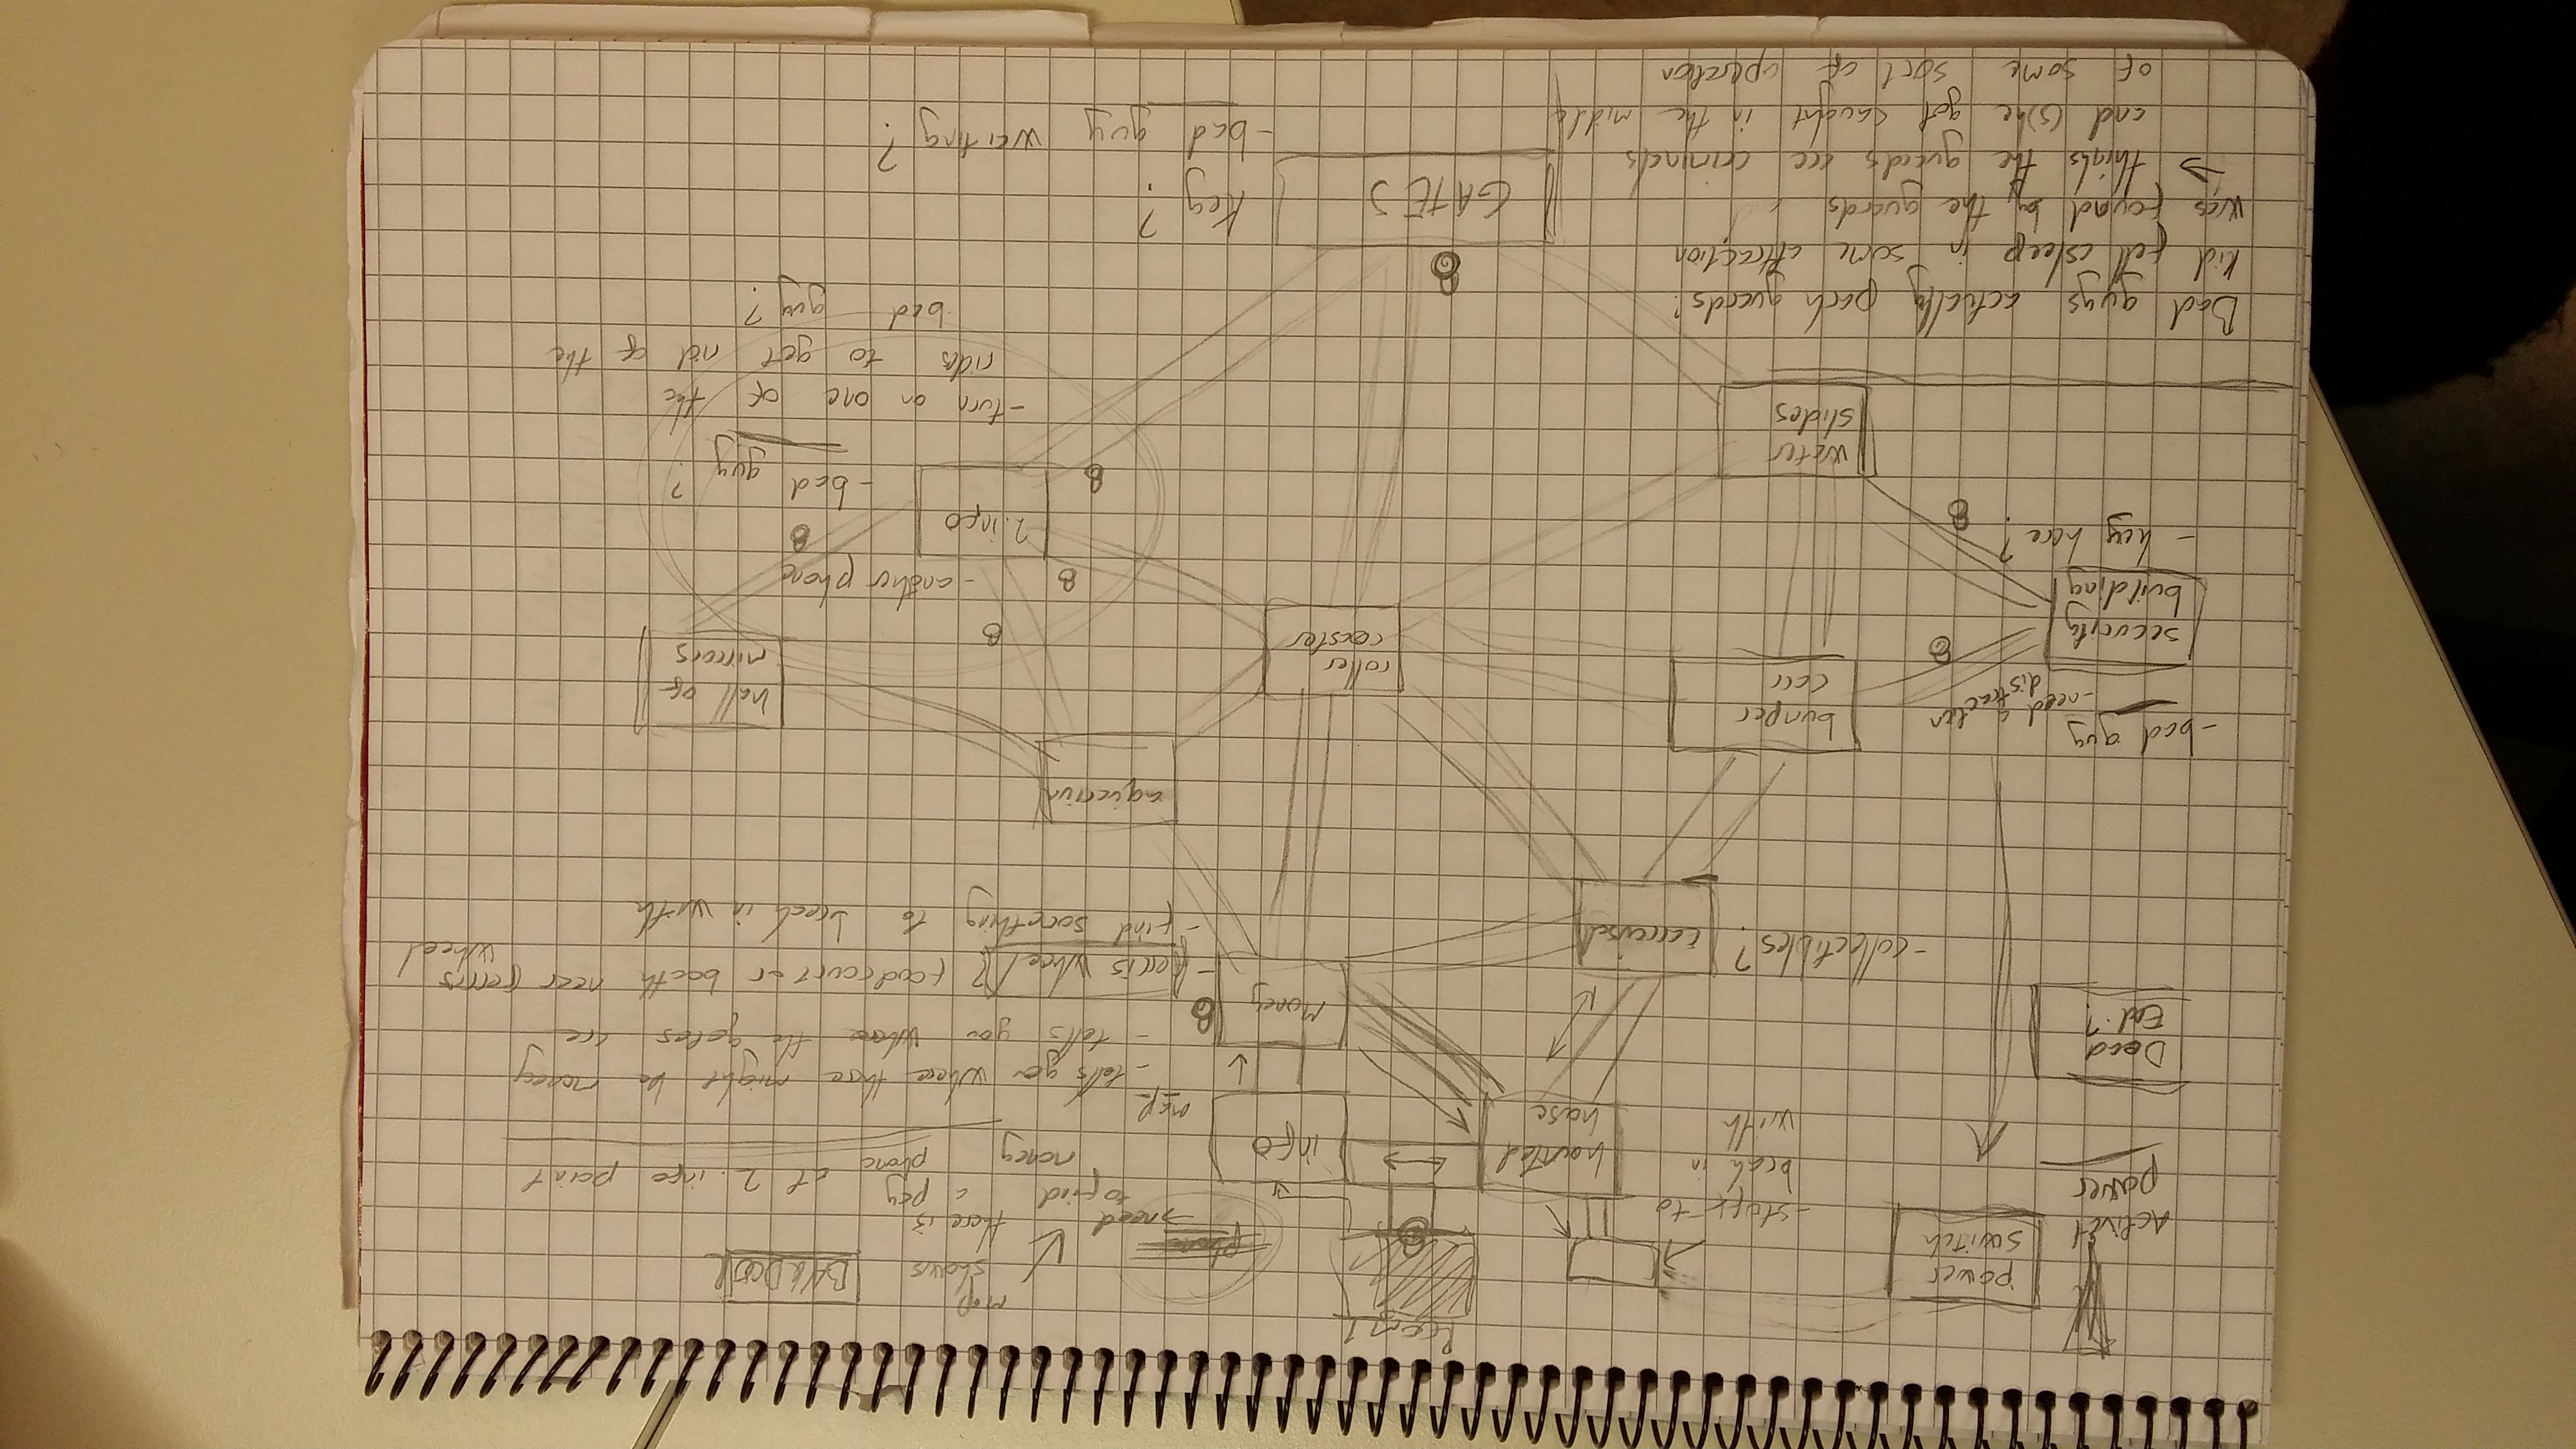 Room 1
power
switch
Activat
power
- stuff to
break in
with
phone
→ need
to find
money
map
shows
there is
a pay
phone at 2. info point
BACKDOOR
haunted
house
info
map
- tells you where there might be money
- tells you where the gates are
Dead
End?
Money
- ferris wheel? foodcourt or booth near ferris
wheel
- find something to break in with
- collectibles?
carrousel
aquarium
- bad guy
- need a
distraction
bumper
carr
roller
coaster
hall of
mirrors
security
building
- key here?
- another phone
2. info
- bad guy?
- turn on one of the
rides to get rid of the
bad guy?
water
slides
Bad guys actually park guards?
Kid fell asleep in some attraction
was found by the guards
→ thinks the guards are criminals
and (s)he got caught in the middle
of some sort of operation
GATES
Key?
- bad guy waiting?